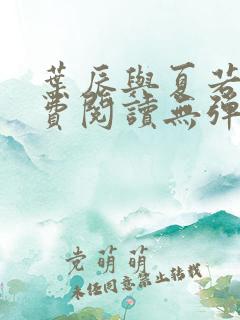 葉辰與夏若
費閱讀無彈
党萌萌
未经同意禁止转载